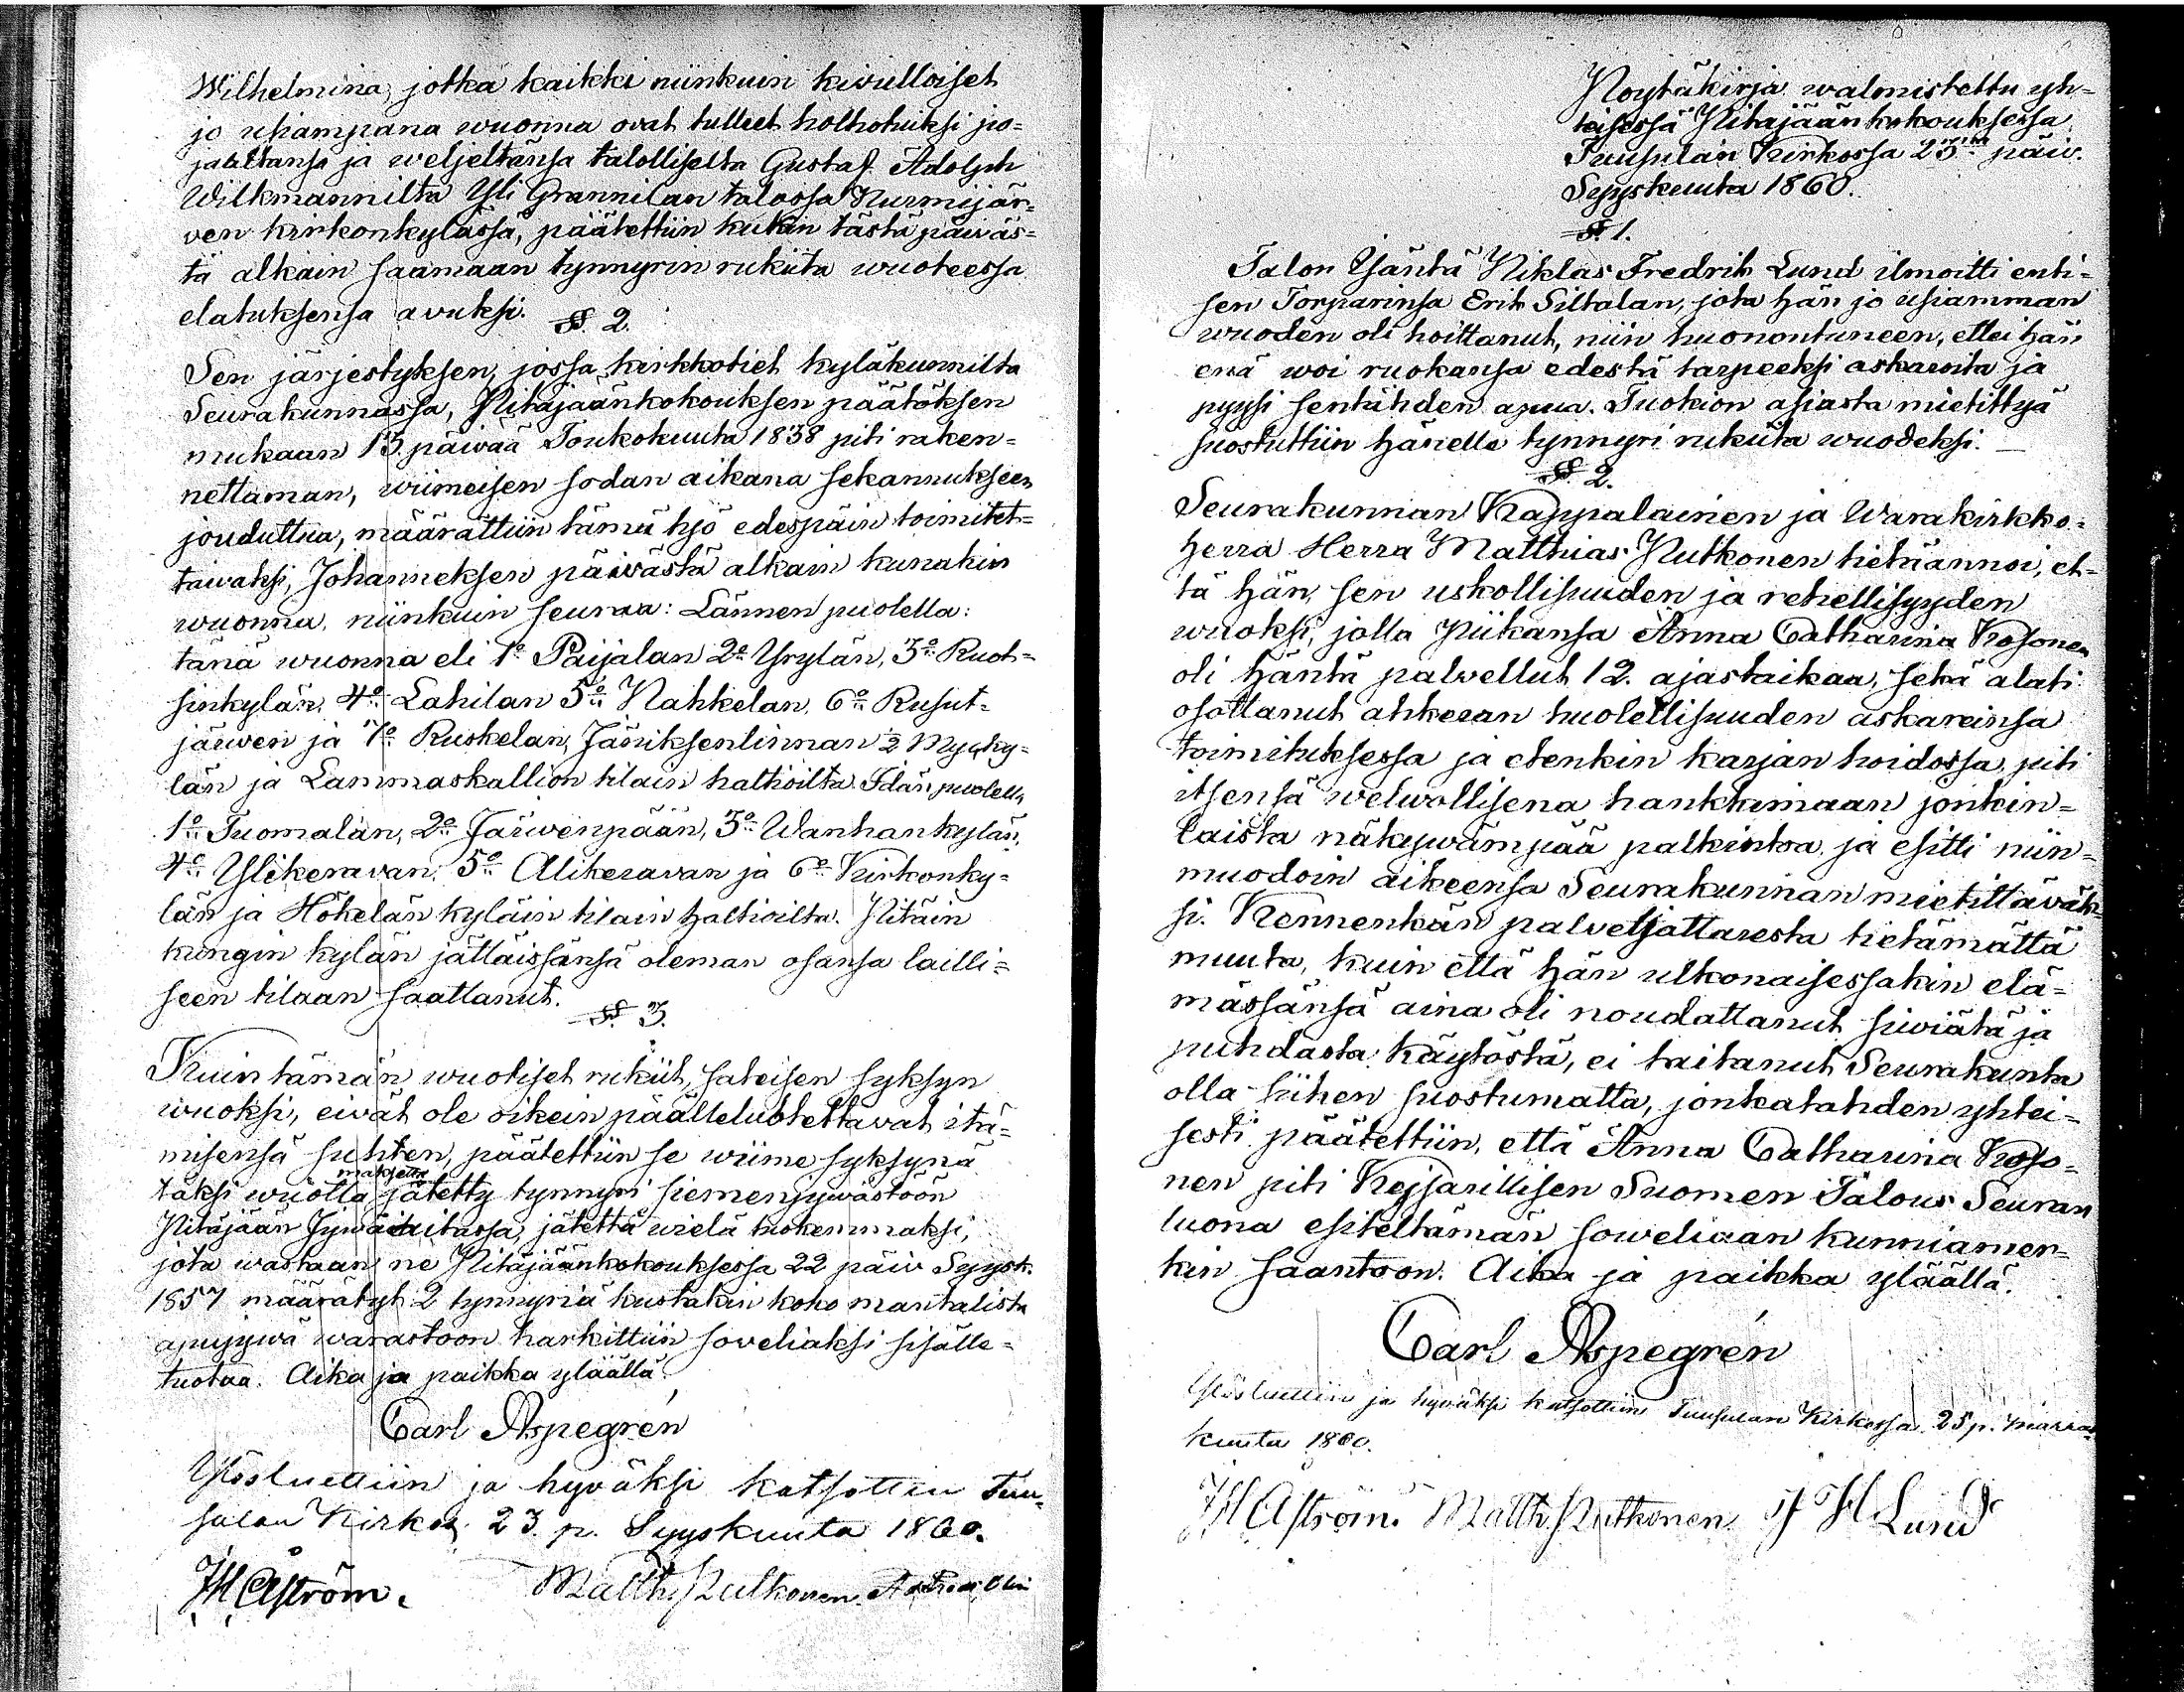 Wilhelmina, jotka kaikki niinkuin kivulloiset
jo usiampana wuonna ovat tulleet holhotuiksi po-
jaltansa ja weljeltänsä talolliselta Gustaf Adolph
Wilkmannilta Yli Grannilan talossa Nurmijär-
ven kirkonkylässä, päätettiin kukin tästä päiväs-
tä alkain saamaan tynnyrin rukiita wuoteessa
elatuksensa avuksi.
§. 2.
Sen järjestyksen, jossa kirkkotiet kyläkunnilta
Seurakunnassa, Pitäjäänkokouksen päätöksen
mukaan 13 päivää Toukokuuta 1838 piti raken-
nettaman, wiimeisen sodan aikana sekannukseen
jouduttua, määrättiin tämä työ edespäin toimitet-
tavaksi, Johanneksen päivästä alkain kunakin
wuonna, niinkuin seuraa: Lännen puolella:
tänä wuonna eli 1:o Paijalan 2:o Yrylän, 3:o Ruot-
sinkylän, 4:o Lahilan 5:o Nahkelan, 6:o Rusut-
järwen ja 7:o Ruskelan, Jäniksenlinnan 2 Myllky-
län ja Lammaskallion tilain haltioilta. Idän puolella
1:o Tuomalan, 2:o Järwenpään, 3:o Wanhankylän,
4:o Ylikeravan, 5:o Alikeravan ja 6:o Kirkonky-
län ja Hökelän kyläin tilain haltioilta. Pitäin
kungin kylän jättäissänsä oleman osansa lailli-
seen tilaan saattanut.
§. 3.
Kuin tämän wuotiset rukiit, sateisen syksyn
wuoksi, eivät ole oikein päälleluotettavat itä-
misensä suhten, päätettiin se wiime syksynä
maksetta
täksi wuotta jätetty tynnyri siemenjywästöön
Pitäjään Jywäaitassa, jätettä wielä tuokemmaksi,
jota wastaan ne Pitäjäänkokouksessa 22 päiv Syysk.
1857 määrätyt 2 tynnyriä kustakin koko mantalista
apujywä warastoon harkittiin soveliaksi sisälle-
tuotaa. Aika ja paikka yläällä.
Carl Aspegrén
Ylösluettiin ja hyväksi katsottiin Tuu-
sulan Kirkos. 23 p. Syyskuuta 1860.
JH Åström. Matth. Putkonen.
Poytäkirja walmistettu yh-
teisessä Pitäjäänkokouksessa
Tuusulan Kirkossa 23:m päiv.
Syyskuuta 1860.
§. 1.
Talon Isäntä Niklas Fredrik Lund ilmoitti enti-
sen Torparinsa Erik Siltalan, jota hän jo usiamman
wuoden oli hoittanut, niin huonontuneen, ettei hän
enä woi ruokansa edestä tarpeeksi askaroita ja
pyysi sentähden apua. Tuokion asiasta mietittyä
suostuttiin hänelle tynnyri rukiita wuodeksi. —
§. 2.
Seurakunnan Kappalainen ja Warakirkko-
herra Herra Matthias Putkonen tietäännoi, et-
tä hän, sen uskollisuuden ja rehellisyyden
wuoksi, jolla Piikansa Anna Catharina Kosonen
oli häntä palvellut 12. ajastaikaa, sekä alati
osottanut ahkeran huolellisuuden askareinsa
toimituksessa ja etenkin karjan hoidossa, piti
itsensä welwollisena hankkimaan jonkin-
laista näkywämpää palkintoa, ja esitti niin-
muodoin aikeensa Seurakunnan mietittäväk-
si. Kennenkän palveljattaresta tietämättä
muuta, kuin että hän ulkonaisessakin elä-
mässänsä aina oli noudattanut siwiätä ja
puhdasta käytöstä, ei taitanut Seurakunta
olla siihen suostumatta, jonkatahden yhtei-
sesti päätettiin, että Anna Catharina Koso-
nen piti Kejsarillisen Suomen Talous Seuran
luona esiteltämän soweliaan kunniamer-
kin saantoon. Aika ja paikka yläällä.
Carl Aspegrén
Ylösluettiin ja hyväksi katsottiin Tuusulan Kirkossa 25 p. Marras-
kuuta 1860.
JH Åström. Matth. Putkonen Lund